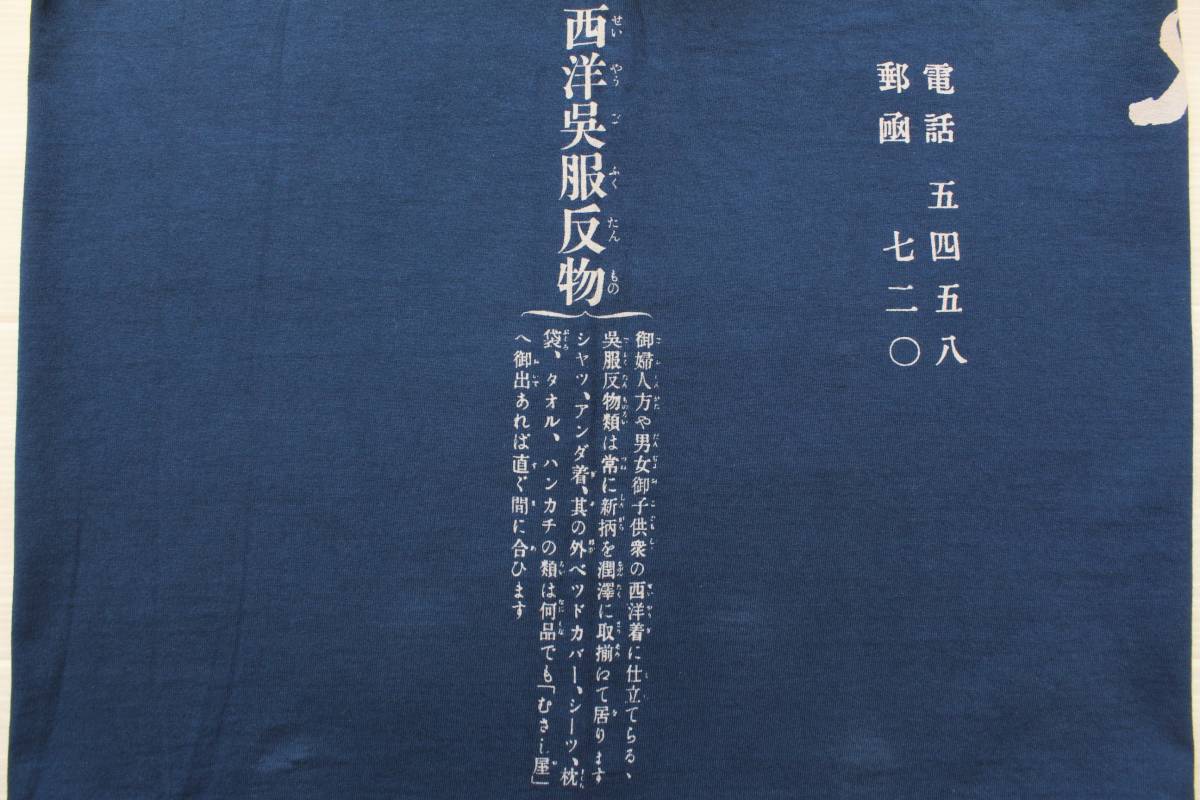 電話 五四五八
郵凾 七二〇
西洋呉服反物
御婦人方や男女御子供衆の西洋着に仕立てらる、
呉服反物類は常に新柄を潤澤に取揃ゐて居ります
シヤツ、アンダ着、其の外ベツドカバー、シーツ、枕
袋、タオル、ハンカチの類は何品でも「むさし屋」
へ御出あれば直ぐ間に合ひます